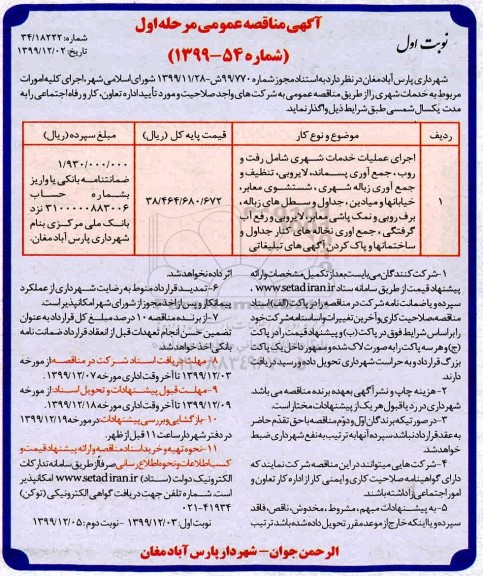 آگهی مناقصه عمومی مرحله اول
(شماره ۵۴-۱۳۹۹)
نوبت اول
شماره: ۳۴/۱۸۲۲۲
تاریخ: ۱۳۹۹/۱۲/۰۲
شهرداری پارس آبادمغان در نظر دارد به استناد مجوز شماره ۹۹/۷۷۰ش-۱۳۹۹/۱۱/۲۸ شورای اسلامی شهر، اجرای کلیه امورات
مربوط به خدمات شهری را از طریق مناقصه عمومی به شرکت های واجد صلاحیت و مورد تأیید اداره تعاون، کار و رفاه اجتماعی را به
مدت یکسال شمسی طبق شرایط ذیل واگذار نماید.
ردیف
موضوع و نوع کار
قیمت پایه کل (ریال)
مبلغ سپرده (ریال)
۱
اجرای عملیات خدمات شهری شامل رفت و
روب، جمع آوری پسماند، لایروبی، تنظیف و
جمع آوری زباله شهری، شستشوی معابر،
خیابانها و میادین، جداول و سطل های زباله،
برف روبی و نمک پاشی معابر، لایروبی و رفع آب
گرفتگی، جمع آوری نخاله های کنار جداول و
ساختمانها و پاک کردن آگهی های تبلیغاتی
۳۸/۴۶۴/۶۸۰/۶۷۲
۱/۹۳۰/۰۰۰/۰۰۰
ضمانتنامه بانکی یا واریز
بشماره حساب
۳۱۰۰۰۰۰۸۸۳۰۰۶ نزد
بانک ملی مرکزی بنام
شهرداری پارس آبادمغان.
۱-شرکت کنندگان می بایست بعد از تکمیل مشخصات وارائه
پیشنهاد قیمت از طریق سامانه ستاد www.setadiran.ir ،
سپرده و یا ضمانت نامه شرکت در مناقصه را در پاکت (الف) اسناد
مناقصه صلاحیت کاری و آخرین تغییرات و اساسنامه شرکت خود
را بر اساس شرایط فوق در پاکت (ب) و پیشنهاد قیمت را در پاکت
(ج) و هر سه پاکت را به صورت لاک شده و ممهور داخل یک پاکت
بزرگ قرارداد و به حراست شهرداری تحویل داده و رسید دریافت
دارند.
۲- هزینه چاپ و نشر آگهی بعهده برنده مناقصه می باشد
شهرداری در رد یا قبول هر یک از پیشنهادات مختار است.
۳- در صورتیکه برندگان اول و دوم مناقصه با حق تقدم حاضر
به عقد قرارداد نباشد سپرده آنها به ترتیب به نفع شهرداری ضبط
خواهد شد.
۴- شرکت هایی میتوانند در این مناقصه شرکت نمایند که
دارای گواهینامه صلاحیت کاری و ایمنی کار از اداره کار تعاون و
امور اجتماعی را داشته باشند.
۵- به پیشنهادات مبهم، مشروط، مخدوش، ناقص، فاقد
سپرده و یا اینکه خارج از موعد مقرر تحویل داده شده باشد ترتیب
اثر داده نخواهد شد.
۶-تمدید قرارداد منوط به رضایت شهرداری از عملکرد
پیمانکار و پس از اخذ مجوز از شورای شهر امکانپذیر است.
۷-از برنده مناقصه ۱۰ درصد مبلغ کل قرارداد به عنوان
تضمین حسن انجام تعهدات قبل از انعقاد قرارداد ضمانت نامه
بانکی اخذ خواهد شد.
۸- مهلت دریافت اسناد شرکت در مناقصه: از مورخه
۱۳۹۹/۱۲/۰۳ تا آخر وقت اداری مورخه ۱۳۹۹/۱۲/۰۷.
۹-مهلت قبول پیشنهادات و تحویل اسناد: از مورخه
۱۳۹۹/۱۲/۰۹ تا آخر وقت اداری مورخه ۱۳۹۹/۱۲/۱۸.
۱۰-بازگشایی و بررسی پیشنهادات: در مورخه ۱۳۹۹/۱۲/۱۹
در دفتر شهردار ساعت ۱۱ قبل از ظهر.
۱۱-نحوه تهیه و خرید اسناد مناقصه و ارائه پیشنهاد قیمت و
کسب اطلاعات و نحوه اطلاع رسانی صرفاً از طریق سامانه تدارکات
الکترونیک دولت (ستاد) (www.setadiran.ir) امکانپذیر
است. شماره تلفن جهت دریافت گواهی الکترونیکی (توکن)
۰۲۱-۴۱۹۳۴
نوبت اول: ۱۳۹۹/۱۲/۰۳ - نوبت دوم: ۱۳۹۹/۱۲/۰۵
الرحمن جوان - شهردار پارس آبادمغان